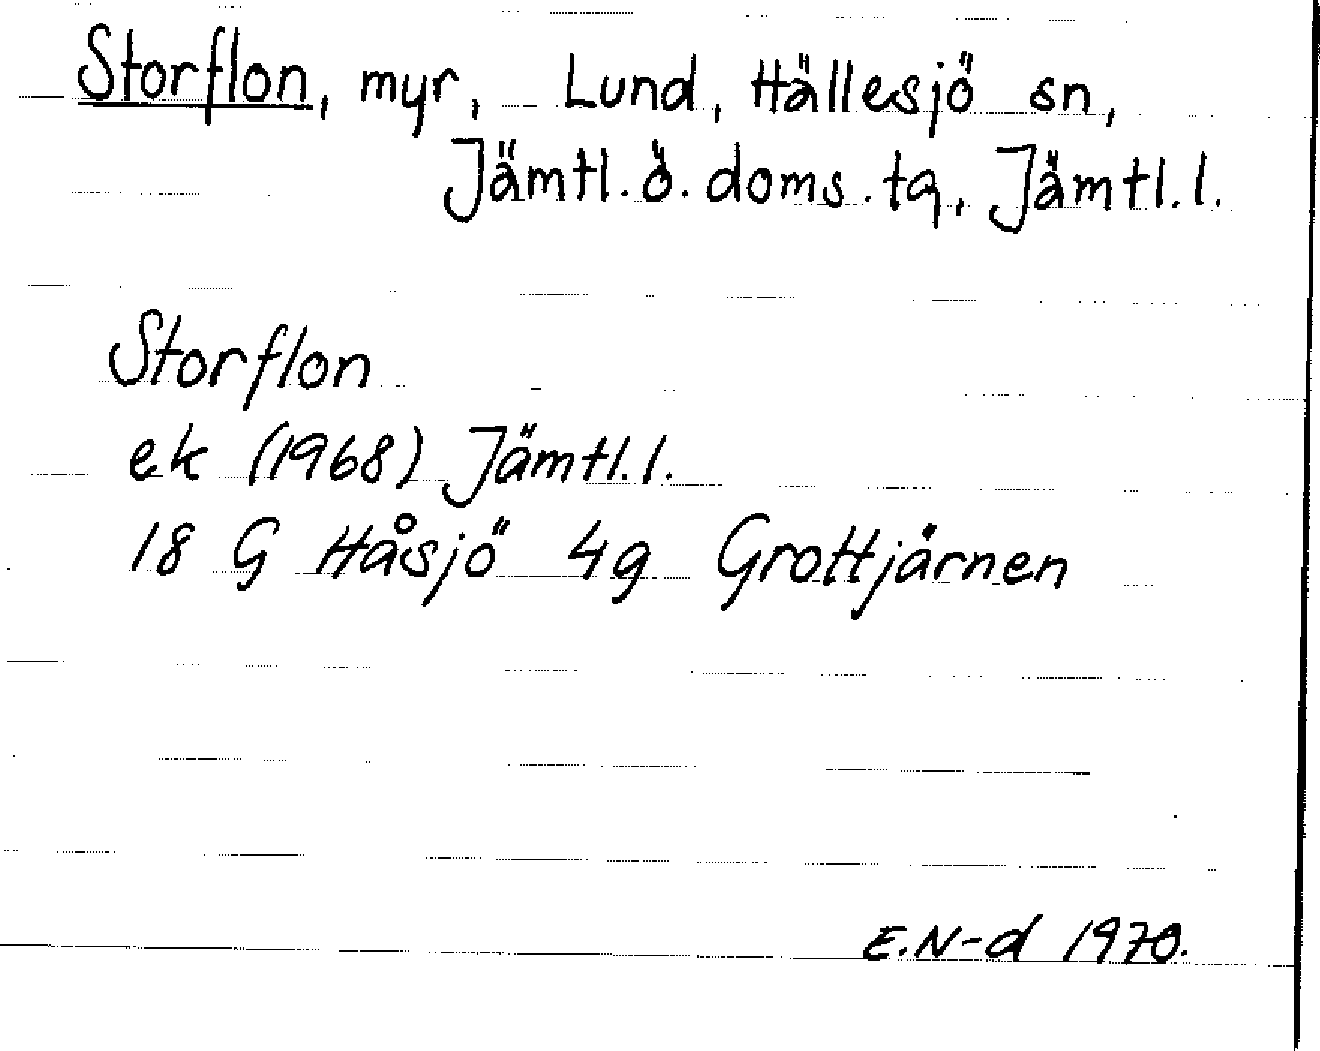 Storflon, myr, Lund, Hällesjö sn,
Jämtl. ö. doms. tg, Jämtl. l.
Storflon
ek (1968) Jämtl. l.
18 G Håsjö 4g Grottjärnen
E.N-d 1970.